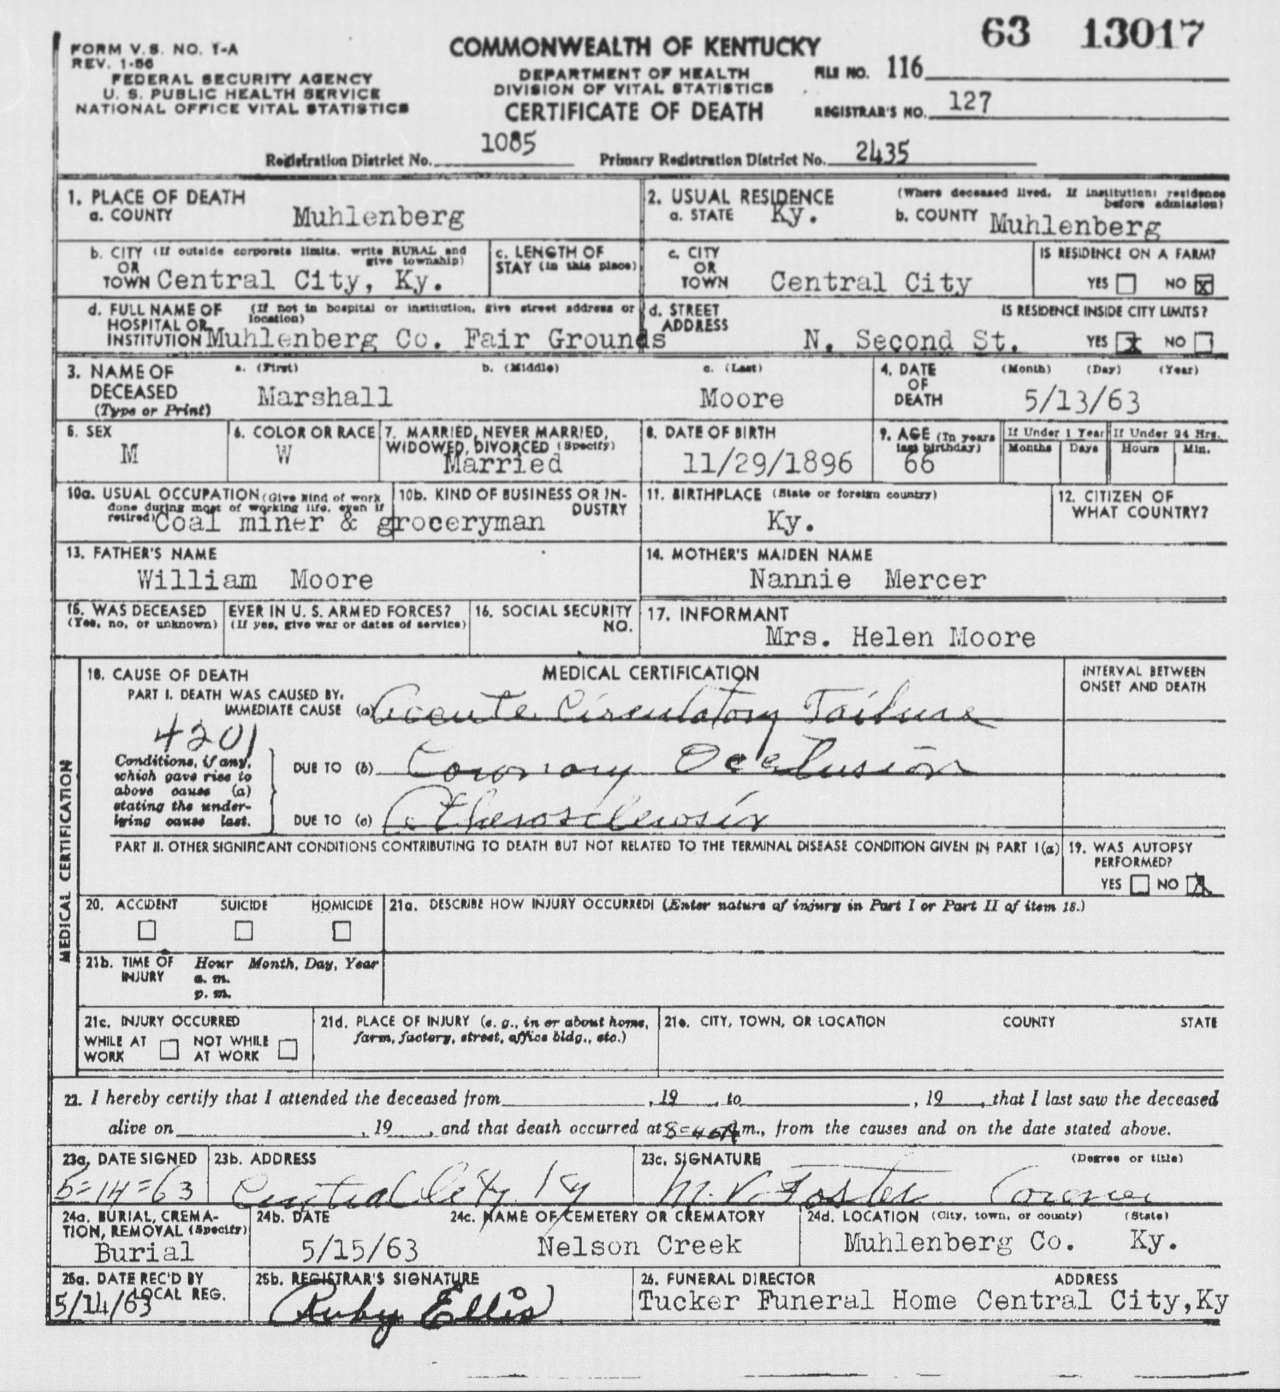 63 13017
FORM V.S. NO. 1-A
REV. 1-56
FEDERAL SECURITY AGENCY
U. S. PUBLIC HEALTH SERVICE
NATIONAL OFFICE VITAL STATISTICS
COMMONWEALTH OF KENTUCKY
DEPARTMENT OF HEALTH
DIVISION OF VITAL STATISTICS
CERTIFICATE OF DEATH
FILE NO. 116
REGISTRAR'S NO. 127
Registration District No. 1085 Primary Registration District No. 2435
1. PLACE OF DEATH
a. COUNTY Muhlenberg
2. USUAL RESIDENCE (Where deceased lived. If institution: residence before admission)
a. STATE Ky. b. COUNTY Muhlenberg
b. CITY (If outside corporate limits, write RURAL and give township)
OR
TOWN Central City, Ky.
c. LENGTH OF STAY (in this place)
c. CITY
OR
TOWN Central City
IS RESIDENCE ON A FARM?
YES NO X
d. FULL NAME OF (If not in hospital or institution, give street address or location)
HOSPITAL OR
INSTITUTION Muhlenberg Co. Fair Grounds
d. STREET
ADDRESS N. Second St.
IS RESIDENCE INSIDE CITY LIMITS?
YES X NO
3. NAME OF DECEASED (Type or Print)
a. (First) b. (Middle) c. (Last)
Marshall Moore
4. DATE OF DEATH (Month) (Day) (Year)
5/13/63
5. SEX
M
6. COLOR OR RACE
W
7. MARRIED, NEVER MARRIED,
WIDOWED, DIVORCED (Specify)
Married
8. DATE OF BIRTH
11/29/1896
9. AGE (In years last birthday)
66
If Under 1 Year If Under 24 Hrs.
Months Days Hours Min.
10a. USUAL OCCUPATION (Give kind of work done during most of working life, even if retired)
10b. KIND OF BUSINESS OR INDUSTRY
Coal miner & groceryman
11. BIRTHPLACE (State or foreign country)
Ky.
12. CITIZEN OF
WHAT COUNTRY?
13. FATHER'S NAME
William Moore
14. MOTHER'S MAIDEN NAME
Nannie Mercer
15. WAS DECEASED EVER IN U. S. ARMED FORCES?
(Yes, no, or unknown) (If yes, give war or dates of service)
16. SOCIAL SECURITY NO.
17. INFORMANT
Mrs. Helen Moore
MEDICAL CERTIFICATION
18. CAUSE OF DEATH MEDICAL CERTIFICATION INTERVAL BETWEEN ONSET AND DEATH
PART I. DEATH WAS CAUSED BY:
IMMEDIATE CAUSE (a) Accute Circulatory Failure
4201
Conditions, if any,
which gave rise to
above cause (a)
stating the under-
lying cause last.
DUE TO (b) Coronary Occlusion
DUE TO (c) Atherosclerosis
PART II. OTHER SIGNIFICANT CONDITIONS CONTRIBUTING TO DEATH BUT NOT RELATED TO THE TERMINAL DISEASE CONDITION GIVEN IN PART I(a)
19. WAS AUTOPSY PERFORMED?
YES NO X
20. ACCIDENT SUICIDE HOMICIDE
21a. DESCRIBE HOW INJURY OCCURRED! (Enter nature of injury in Part I or Part II of item 18.)
21b. TIME OF INJURY Hour Month, Day, Year
a. m.
p. m.
21c. INJURY OCCURRED
WHILE AT WORK NOT WHILE AT WORK
21d. PLACE OF INJURY (e. g., in or about home,
farm, factory, street, office bldg., etc.)
21e. CITY, TOWN, OR LOCATION COUNTY STATE
22. I hereby certify that I attended the deceased from , 19 , to , 19 , that I last saw the deceased
alive on , 19 , and that death occurred at 8=40A m., from the causes and on the date stated above.
23a. DATE SIGNED
5=14=63
23b. ADDRESS
Central City Ky
23c. SIGNATURE (Degree or title)
M. V. Foster Coroner
24a. BURIAL, CREMATION, REMOVAL (Specify)
Burial
24b. DATE
5/15/63
24c. NAME OF CEMETERY OR CREMATORY
Nelson Creek
24d. LOCATION (City, town, or county) (State)
Muhlenberg Co. Ky.
25a. DATE REC'D BY LOCAL REG.
5/14/63
25b. REGISTRAR'S SIGNATURE
Ruby Ellis
26. FUNERAL DIRECTOR ADDRESS
Tucker Funeral Home Central City, Ky